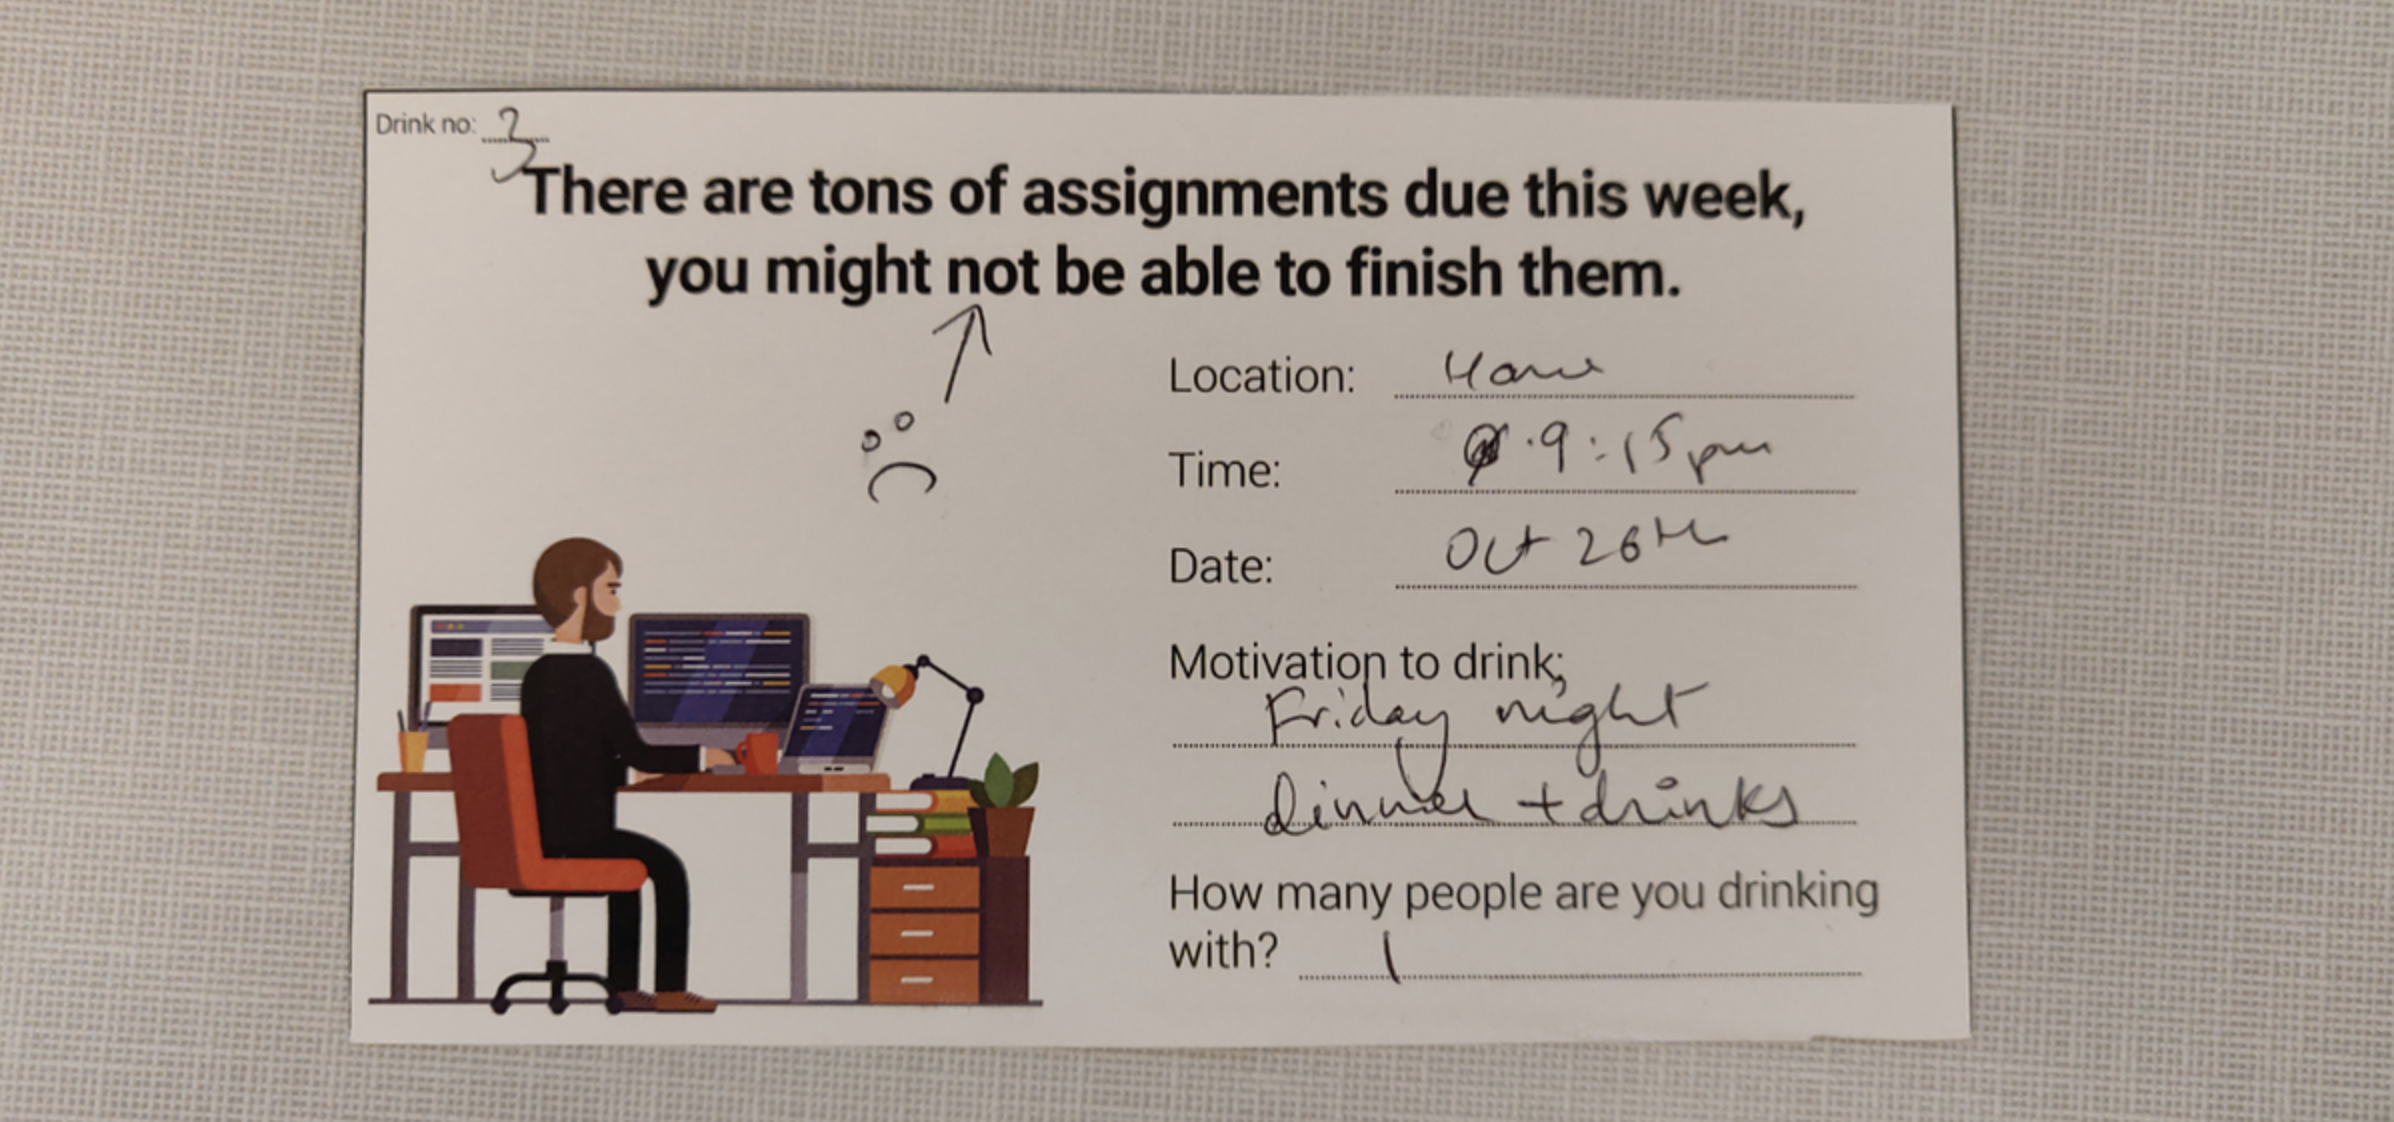 Drink no: 3
There are tons of assignments due this week,
you might not be able to finish them.
Location: Home
Time: 9:15pm
Date: Oct 26th
Motivation to drink:
Friday night
dinner + drinks
How many people are you drinking
with? 1